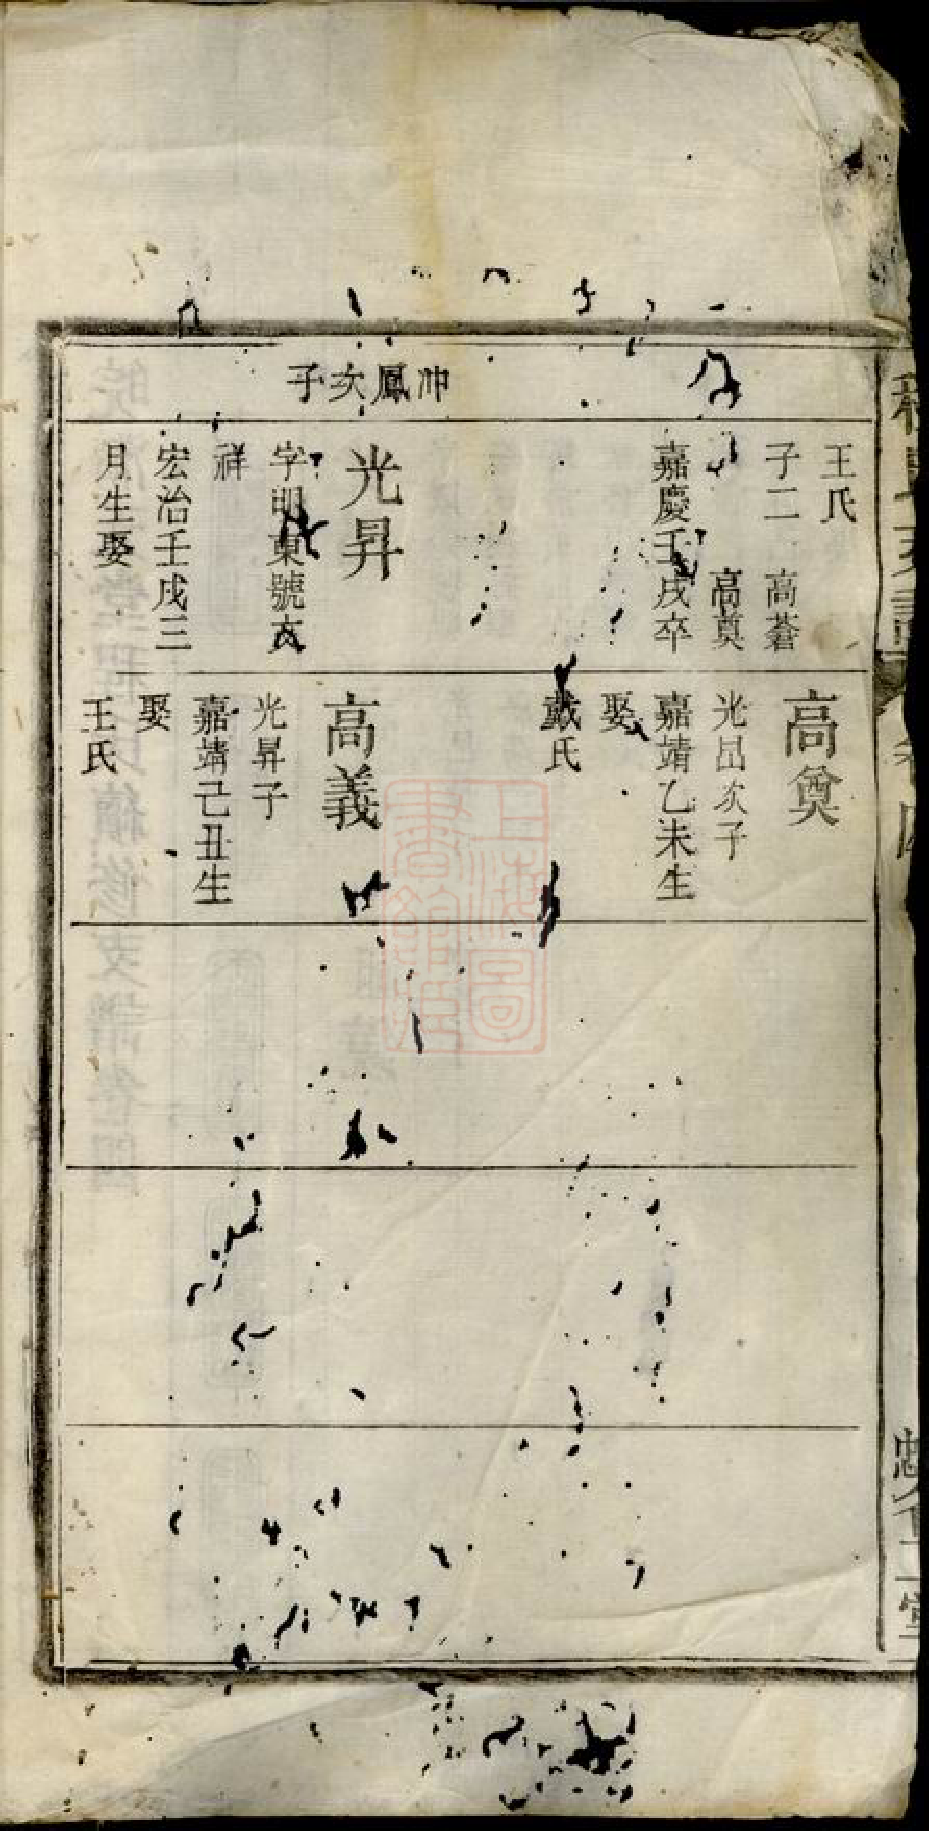 沖鳳次子
王氏
子二 高蒼
高奠
嘉慶壬戌卒
光昇
字明東號友
祥
宏治壬戌三
月生娶
高奠
光昷次子
嘉靖乙未生
娶
戴氏
高義
光昇子
嘉靖己丑生
娶
王氏
上海圖書館藏